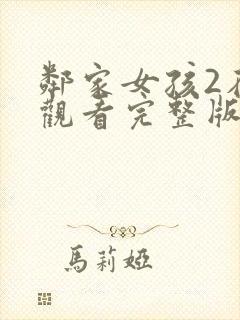 鄰家女孩2
觀看完整版
馬莉婭